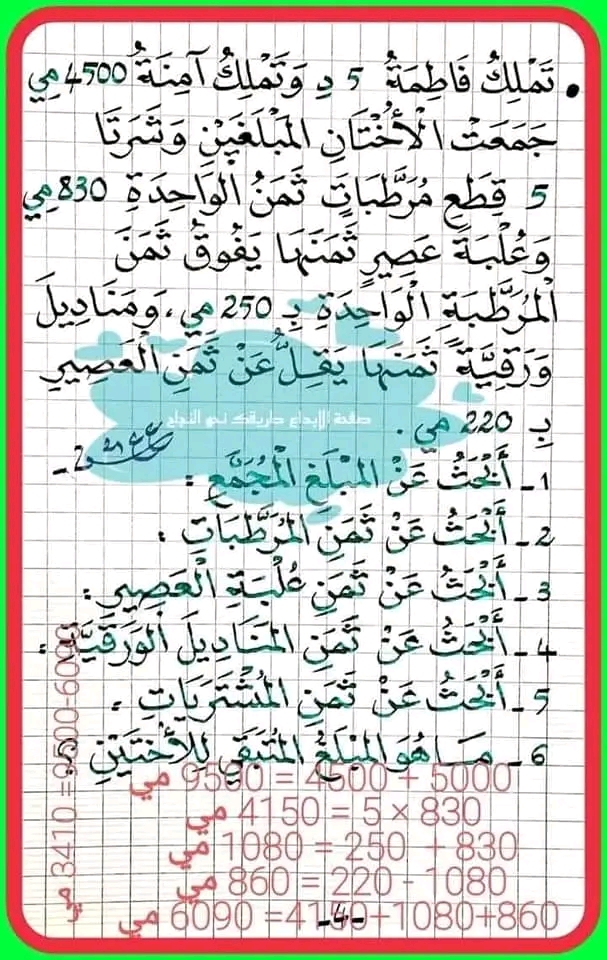 • تَمْلِكُ فَاطِمَةُ 5 د وَتَمْلِكُ آمِنَةُ 4500 مِي
جَمَعَتْ الْأُخْتَانِ المَبْلَغَيْنِ وَشَرَتَا
5 قِطَعِ مُرَطَّبَاتٍ ثَمَنُ الوَاحِدَةِ 830 مِي
وَعُلْبَةً عَصِيرٍ ثَمَنَهَا يَفُوقُ ثَمَنَ
الْمُرَطَّبَةِ الْوَاحِدَةِ بِـ 250 مي، وَمَنَادِيلَ
وَرَقِيَّةً ثَمَنَهَا يَقِلُّ عَنْ ثَمَنِ الْعَصِيرِ
بِـ 220 مي .
صفحة الإبداع طريقك نحو النجاح
1 - أَبْحَثُ عَنْ المَبْلَغِ الْمُجَمَّعِ :
2 - أَبْحَثُ عَنْ ثَمَنِ المُرَطَّبَاتِ :
3 - أَبْحَثُ عَنْ ثَمَنِ عُلْبَةِ الْعَصِيرِ :
4 - أَبْحَثُ عَنْ ثَمَنِ المَنَادِيلَ الوَرَقِيَّةِ :
5 - أَبْحَثُ عَنْ ثَمَنِ المُشْتَرَيَاتِ :
6 - مَا هُوَ المَبْلَغُ المُتَبَقِّي لِلأُخْتَيْنِ ؟
5000 + 4500 = 9500 مي
830 × 5 = 4150 مي
830 + 250 = 1080 مي
1080 - 220 = 860 مي
860+1080+4150= 6090 مي
9500-6090= 3410 مي
-4-